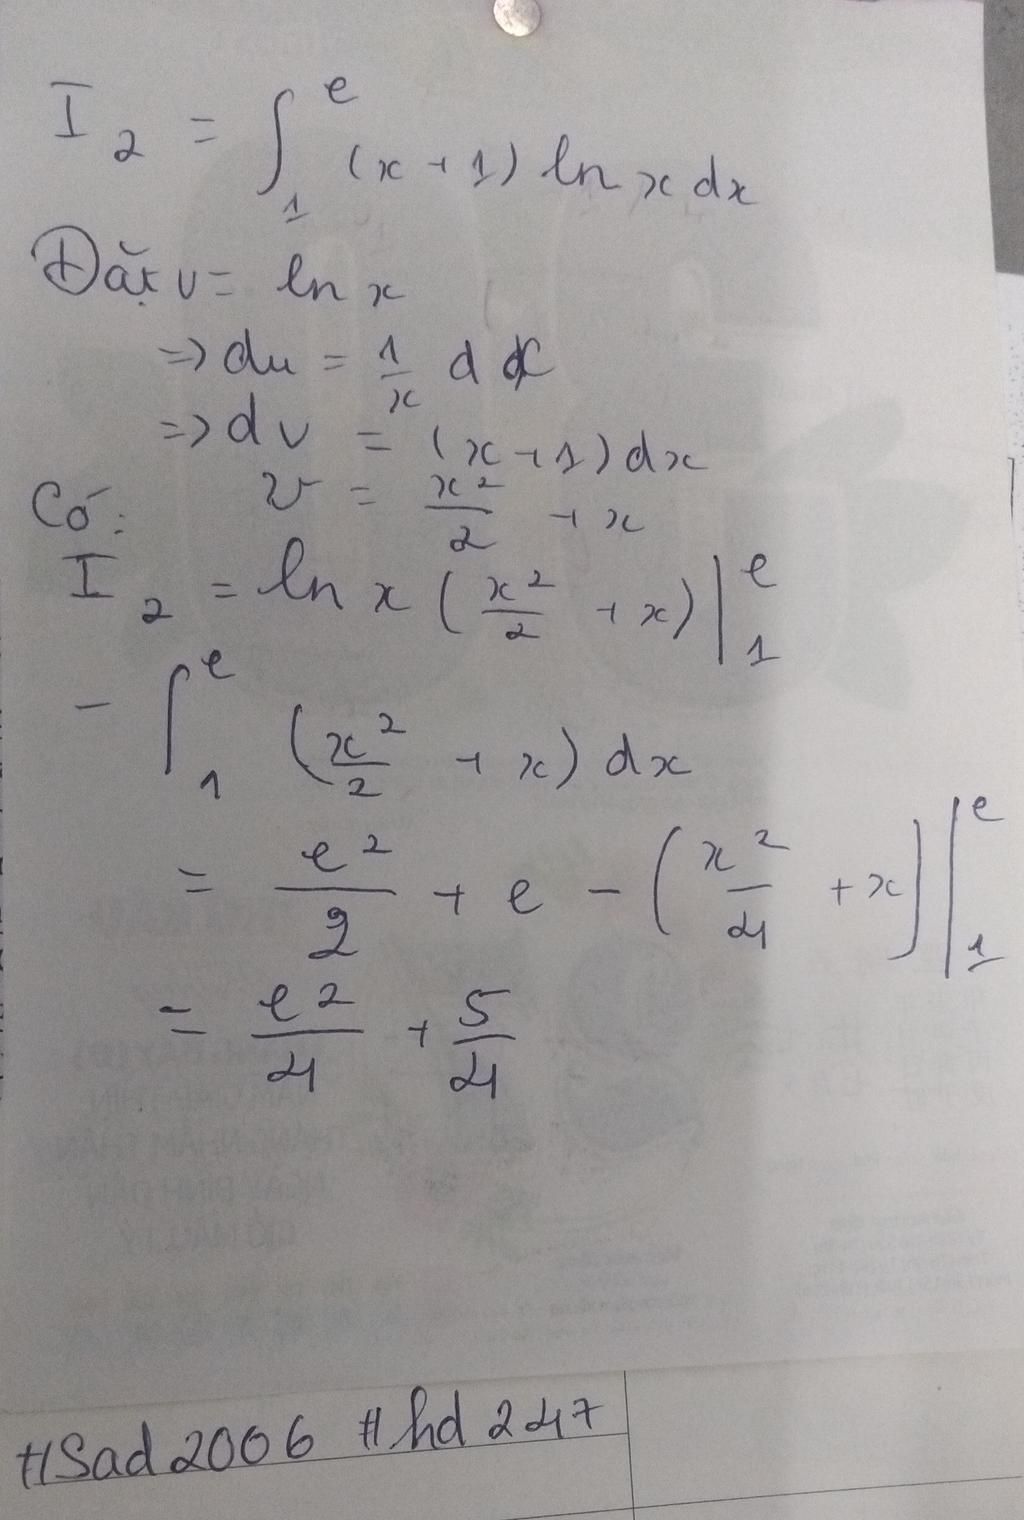 I₂ = ∫₁ᵉ (x + 1) ln x dx
Đặt u = ln x
=> du = 1/x dx
=> dv = (x + 1) dx
v = x²/2 + x
Có:
I₂ = ln x (x²/2 + x) |₁ᵉ
- ∫₁ᵉ (x²/2 + x) dx
= e²/2 + e - (x²/4 + x) |₁ᵉ
= e²/4 + 5/4
#Sad2006 #hd247